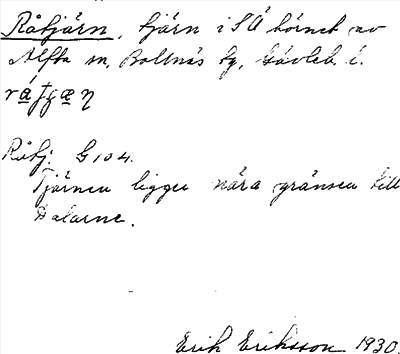 Råtjärn, tjärn i SÄ hörnet av
Alfta sn, Bollnäs tg, Gävleb. l.
Råtj: G 104.
Tjärnen ligger nära gränsen till
Dalarne.
Erik Eriksson 1930.